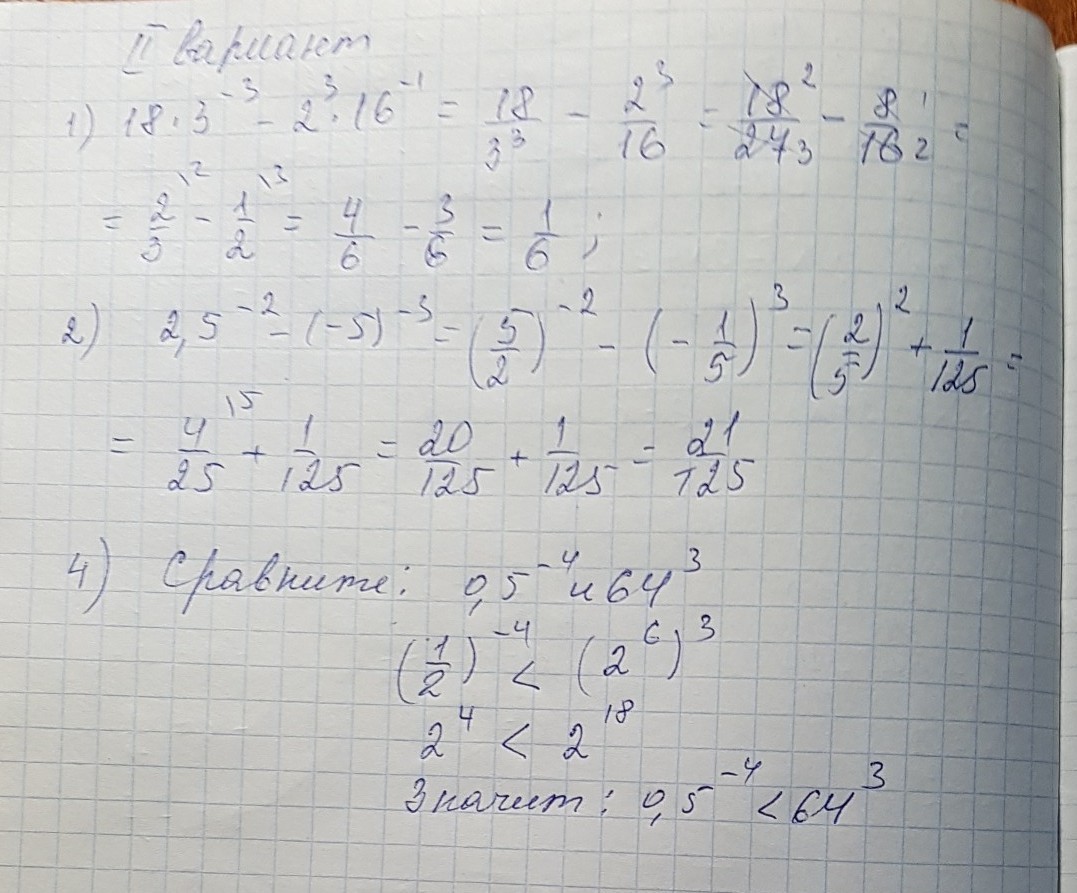 II вариант
1) 18·3⁻³ − 2³·16⁻¹ = 18/3³ − 2³/16 = 18²/27₃ − 8¹/16₂ =
= 2/3\² − 1/2\³ = 4/6 − 3/6 = 1/6 ;
2) 2,5⁻² − (−5)⁻³ = (5/2)⁻² − (−1/5)³ = (2/5)² + 1/125 =
= 4/25\⁵ + 1/125 = 20/125 + 1/125 = 21/125
4) Сравните: 0,5⁻⁴ и 64³
(1/2)⁻⁴ < (2⁶)³
2⁴ < 2¹⁸
Значит: 0,5⁻⁴ < 64³